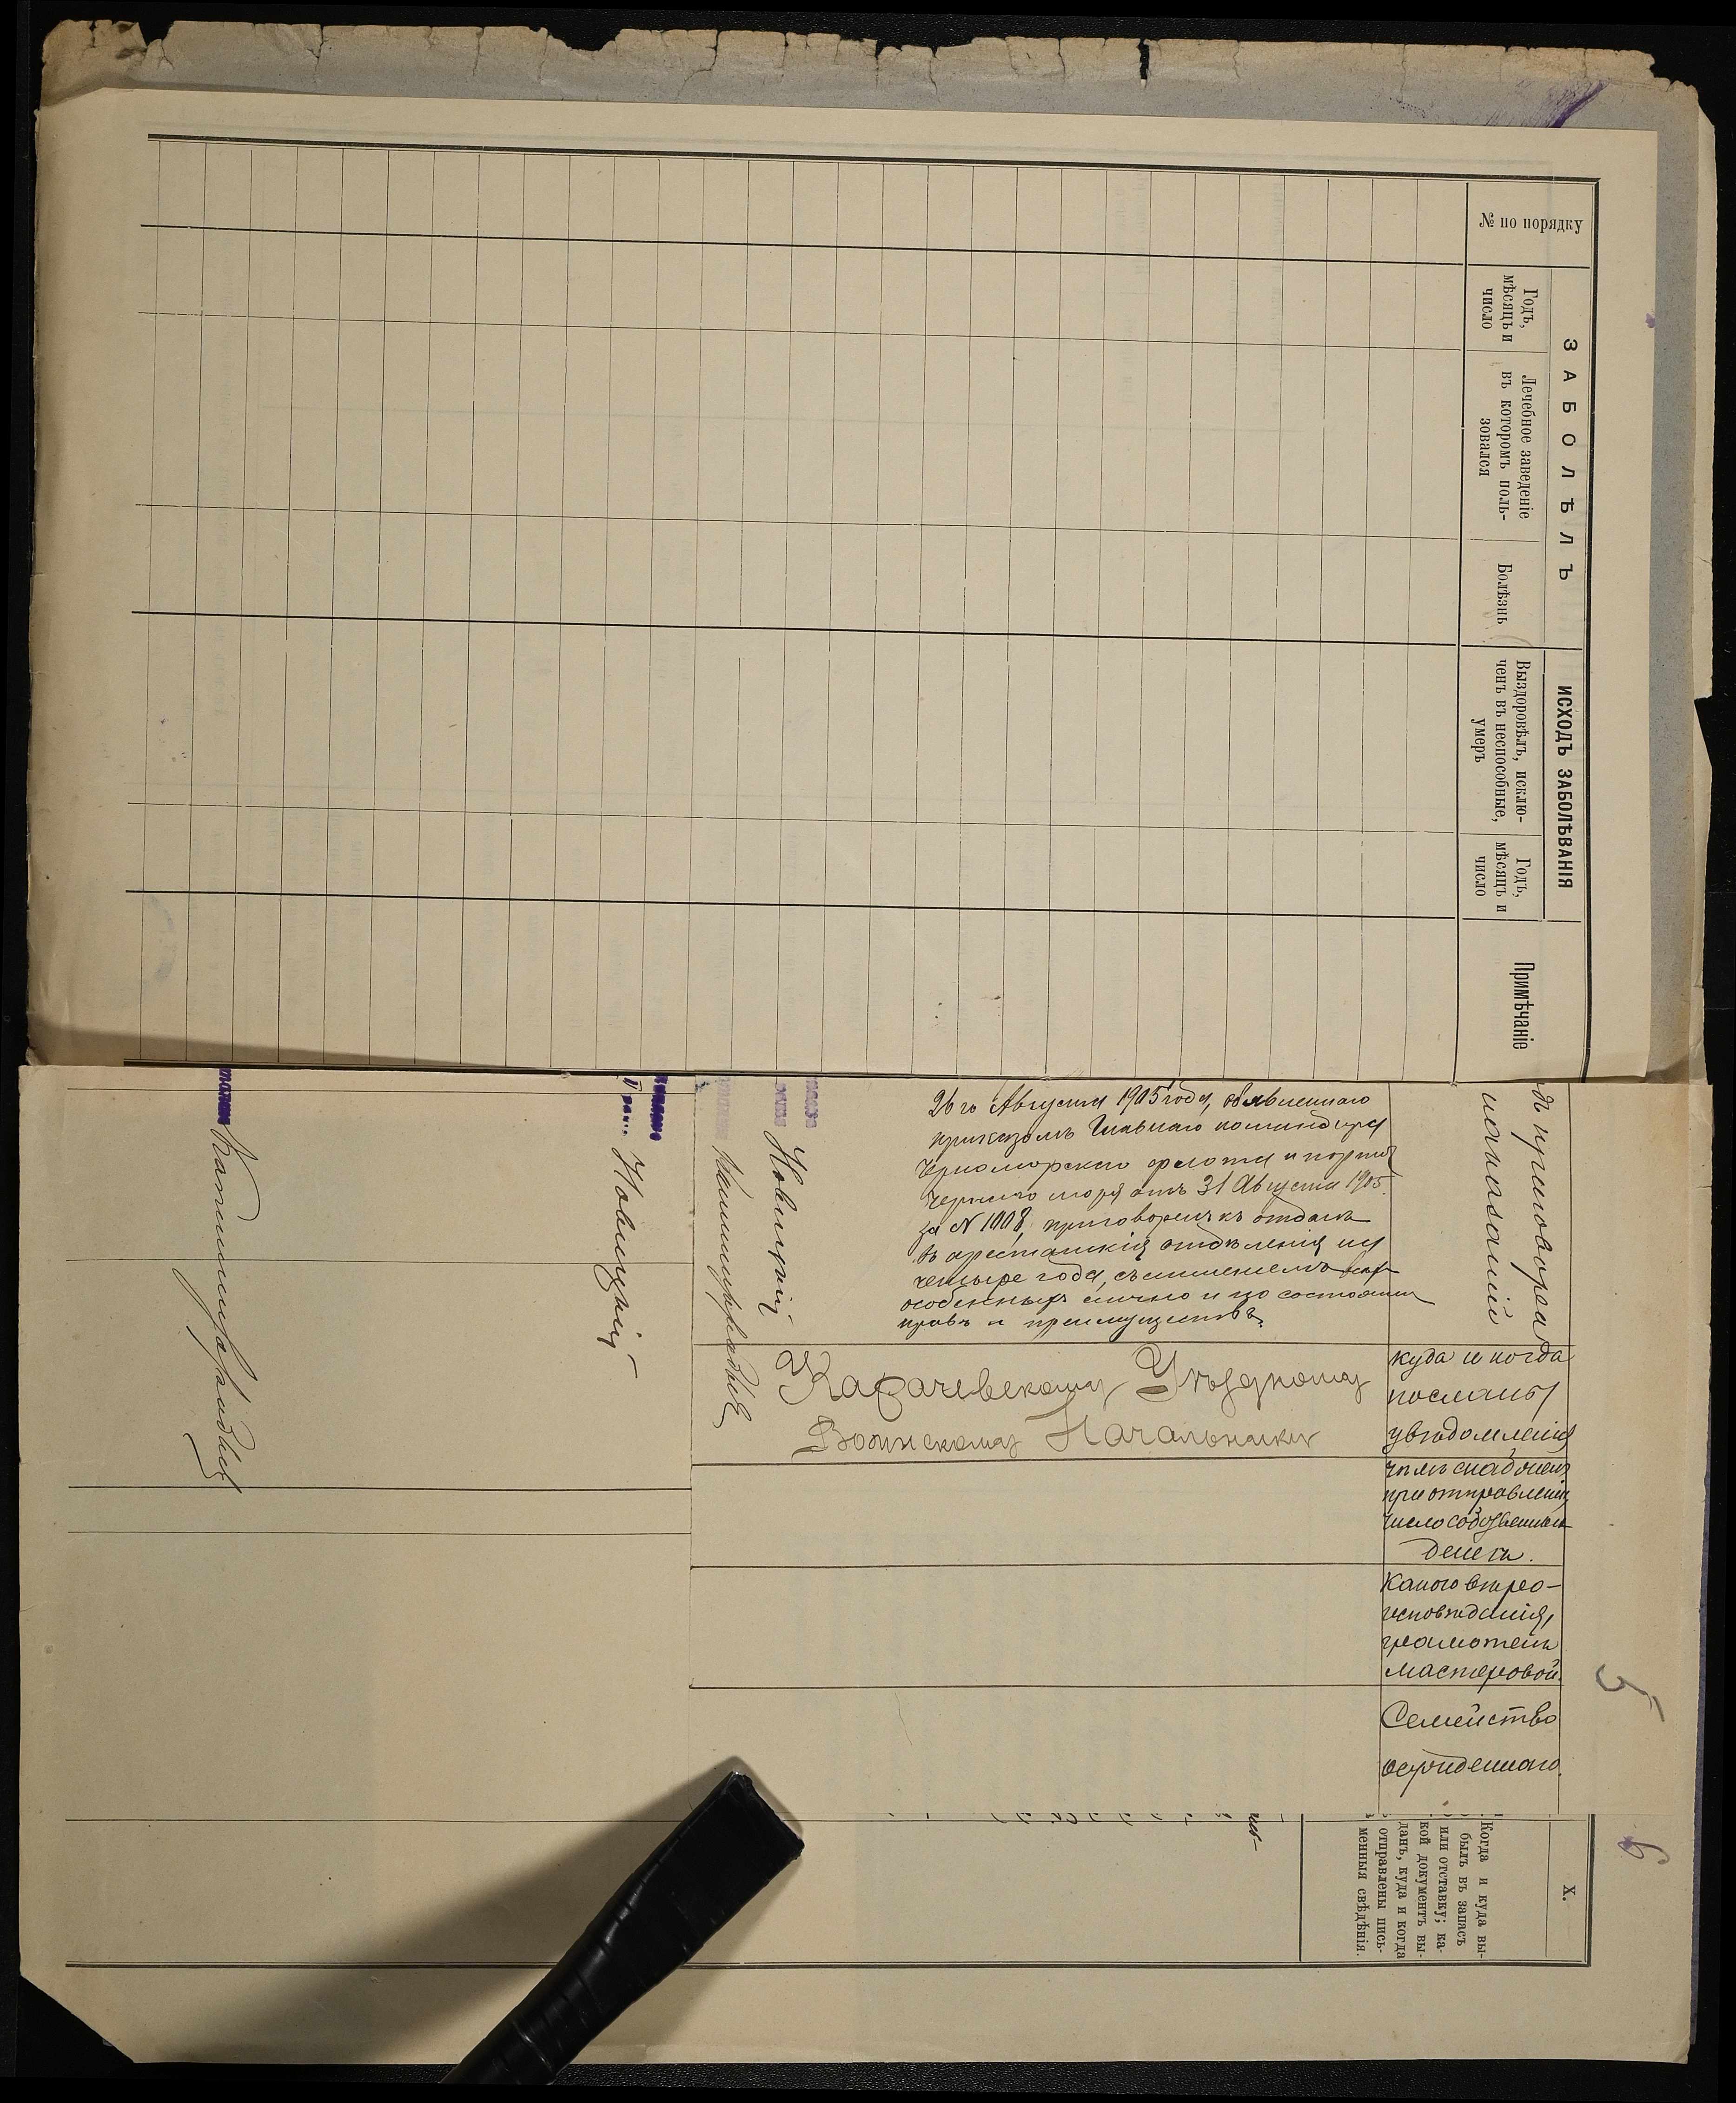 № по порядку
ЗАБОЛѢЛЪ
Годъ,
мѣсяцъ и
число
Лечебное заведеніе
въ которомъ поль-
зовался
Болѣзнь
ИСХОДЪ ЗАБОЛѢВАНІЯ
Выздоровѣлъ, исклю-
ченъ въ неспособные,
умеръ
Годъ,
мѣсяцъ и
число
Примѣчаніе
26го Августа 1905 года, объявленнаго
приказомъ Главнаго командира
Черноморскаго флота и портовъ
Чернаго моря отъ 31 Августа 1905.
за N 1008, приговоренъ къ отдачѣ
въ арестантскія отдѣленія на
четыре года, съ лишеніемъ
особенныхъ лично и по состоянію
правъ и преимуществъ.
Карачевскому Уѣздному
Воинскому Начальнику
приговорен
куда и когда
посланы
увѣдомленія
чѣмъ снабженъ
при отправленіи,
число собственныхъ
денегъ.
Какого вѣро-
исповѣданія,
грамотенъ
мастеровой.
Семейство
осужденнаго.
5
6
X.
Когда и куда вы-
былъ въ запасъ
или отставку; ка-
кой документъ вы-
данъ, куда и когда
отправлены пись-
менныя свѣдѣнія.